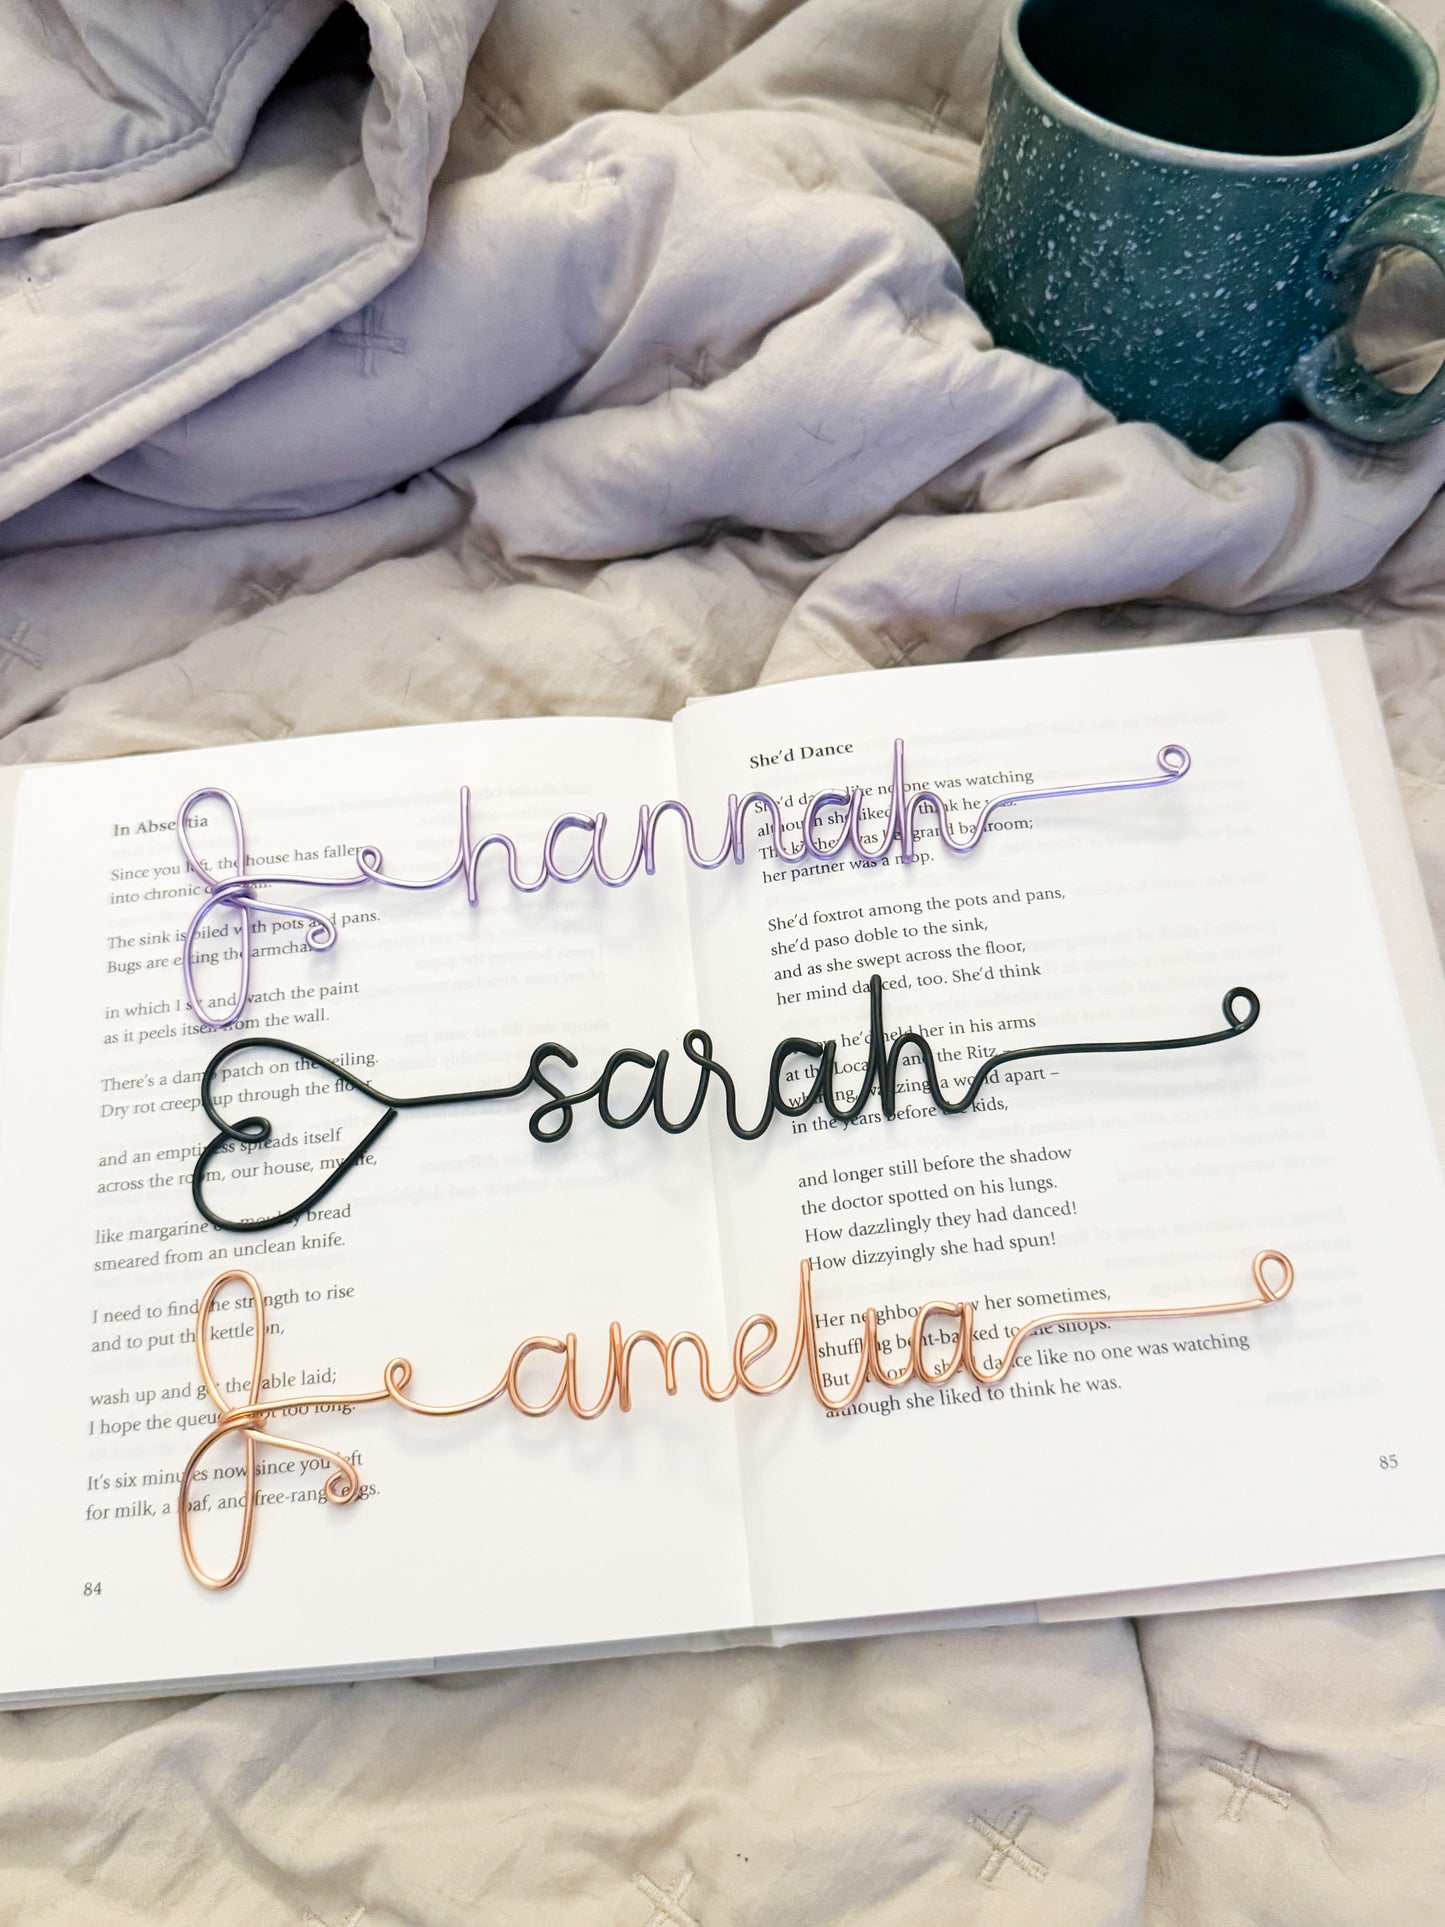 hannah
sarah
amelia
In Absentia
Since you left, the house has fallen
into chronic
The sink is piled with pots and pans.
Bugs are eating the armchair
in which I sit and watch the paint
as it peels itself from the wall.
There's a damp patch on the ceiling.
Dry rot creeps up through the floor
and an emptiness spreads itself
across the room, our house, my life,
like margarine on mouldy bread
smeared from an unclean knife.
I need to find the strength to rise
and to put the kettle on,
wash up and get the table laid;
I hope the queue's not too long.
It's six minutes now since you left
for milk, a loaf, and free-range eggs.
84
She'd Dance
She'd dance like no one was watching
although she liked to think he was.
The kitchen was her grand ballroom;
her partner was a mop.
She'd foxtrot among the pots and pans,
she'd paso doble to the sink,
and as she swept across the floor,
her mind danced, too. She'd think
how he'd held her in his arms
at the and the Ritz –
waltzing, a world apart –
in the years before the kids,
and longer still before the shadow
the doctor spotted on his lungs.
How dazzlingly they had danced!
How dizzyingly she had spun!
Her neighbours saw her sometimes,
shuffling bent-backed to the shops.
But she'd dance like no one was watching
although she liked to think he was.
85